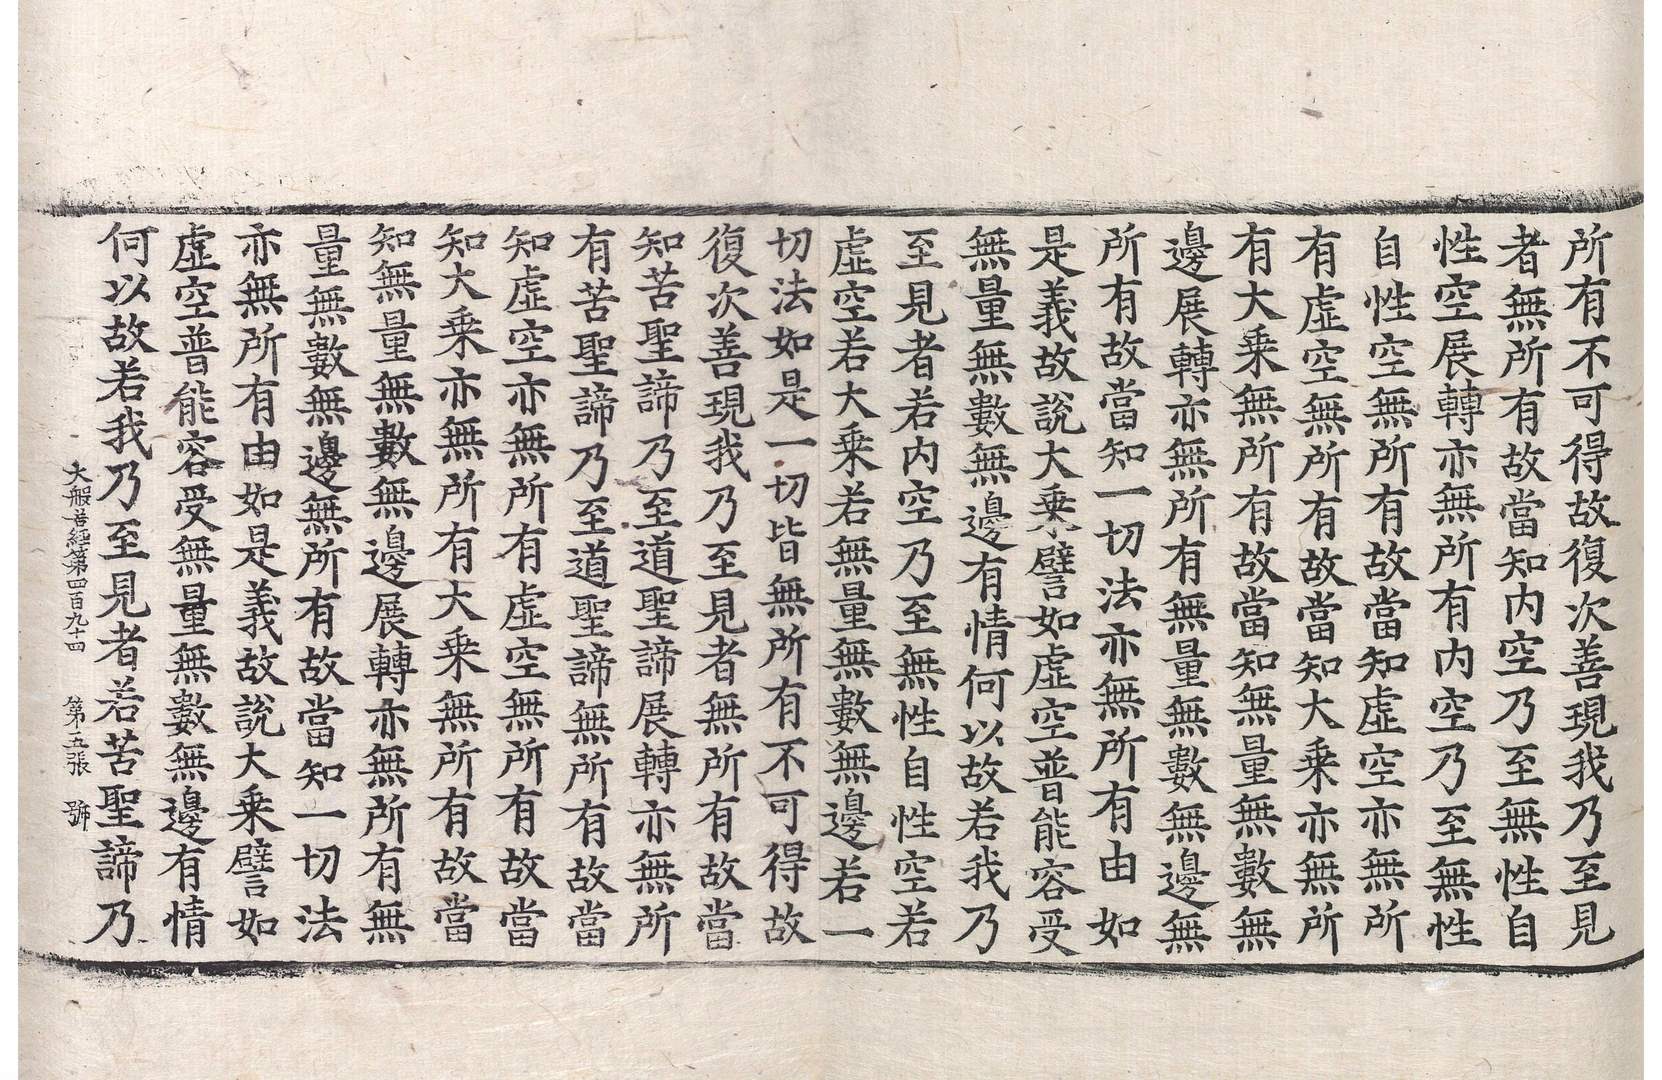 所有不可得故復次善現我乃至見
者無所有故當知内空乃至無性自
性空展轉亦無所有内空乃至無性
自性空無所有故當知虛空亦無所
有虛空無所有故當知大乗亦無所
有大乗無所有故當知無量無數無
邊展轉亦無所有無量無數無邊無
所有故當知一切法亦無所有由如
是義故說大乗譬如虛空普能容受
無量無數無邊有情何以故若我乃
至見者若内空乃至無性自性空若
虛空若大乗若無量無數無邊若一
切法如是一切皆無所有不可得故
復次善現我乃至見者無所有故當
知苦聖諦乃至道聖諦展轉亦無所
有苦聖諦乃至道聖諦無所有故當
知虛空亦無所有虛空無所有故當
知大乗亦無所有大乗無所有故當
知無量無數無邊展轉亦無所有無
量無數無邊無所有故當知一切法
亦無所有由如是義故說大乗譬如
虛空普能容受無量無數無邊有情
何以故若我乃至見者若苦聖諦乃
大般若經第四百九十四 第五張 號